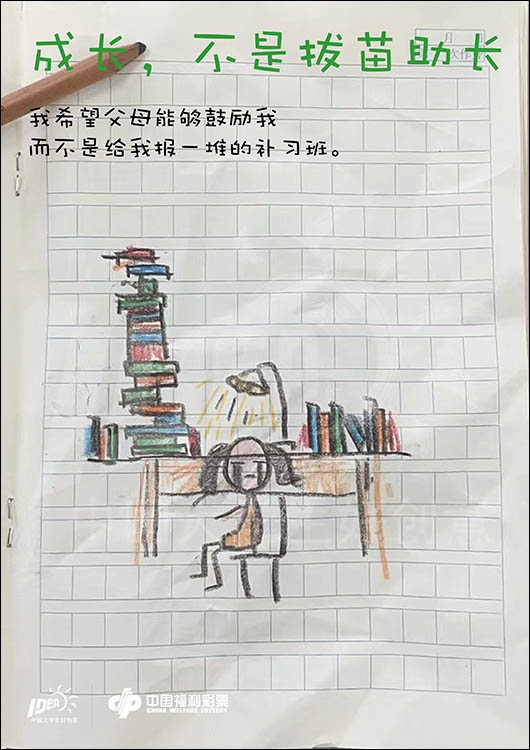 月
成长，不是拔苗助长
次作
我希望父母能够鼓励我
而不是给我报一堆的补习班。
IDEA
中国大学生好创意
中国福利彩票
CHINA WELFARE LOTTERY